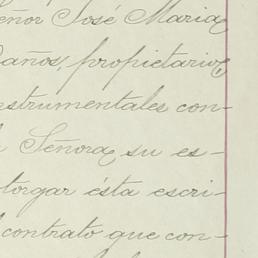 eñor José Maria
años, propietario,
nstrumentales con-
Señora, su es-
torgar ésta escri-
contrato que con-